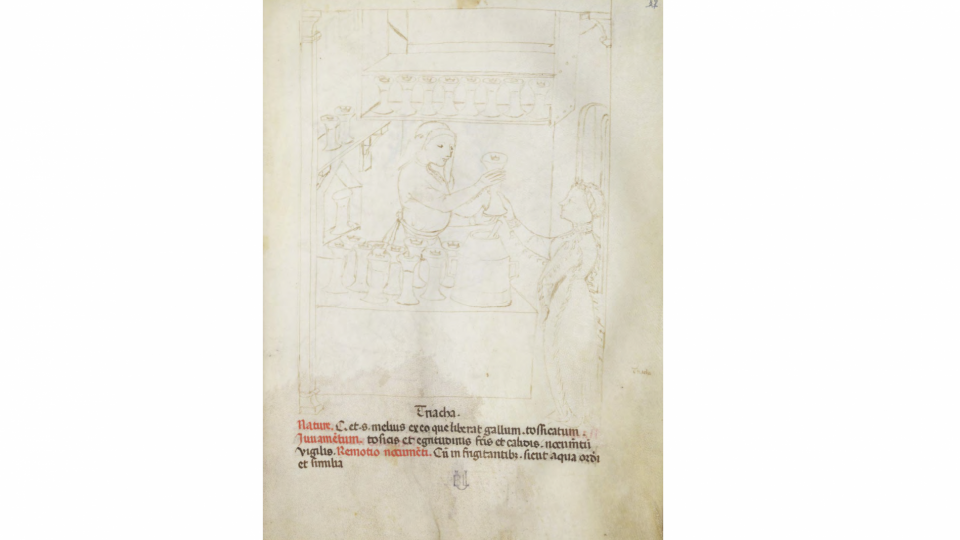 Tͥriacha.
Nature. C. et. s. melius ex eo que liberat gallum. tossicatum.
Iuuam̃tum. tosicis et egritudinis fr̃is et calidis. nocum̃tũ
vigilis. Remotio nocum̃ti. Cũ in frigitantibꝫ. sicut aqua ordi
et similia